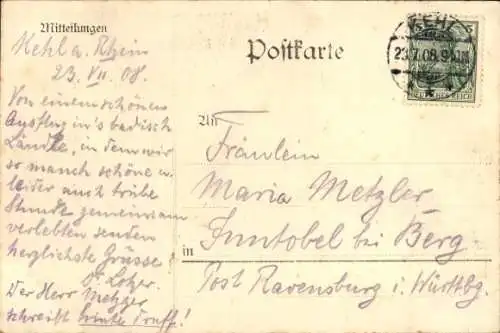 Mitteilungen
Kehl a. Rhein
23. VII. 08.
Von einem schönen
Ausflug in's badisch
Ländle, in dem wir
so manch schöne u.
leider auch trübe
Stunde gemeinsam
verlebten senden
herzlichste Grüsse!
Der Herr Metzger
schreibt hinten drauf!
Postkarte
KEHL
23.7.08.9-10
5
DEUTSCHES REICH
An
Fräulein
Maria Metzler
Inntobel bei Berg
in
Post Ravensburg i. Württbg.